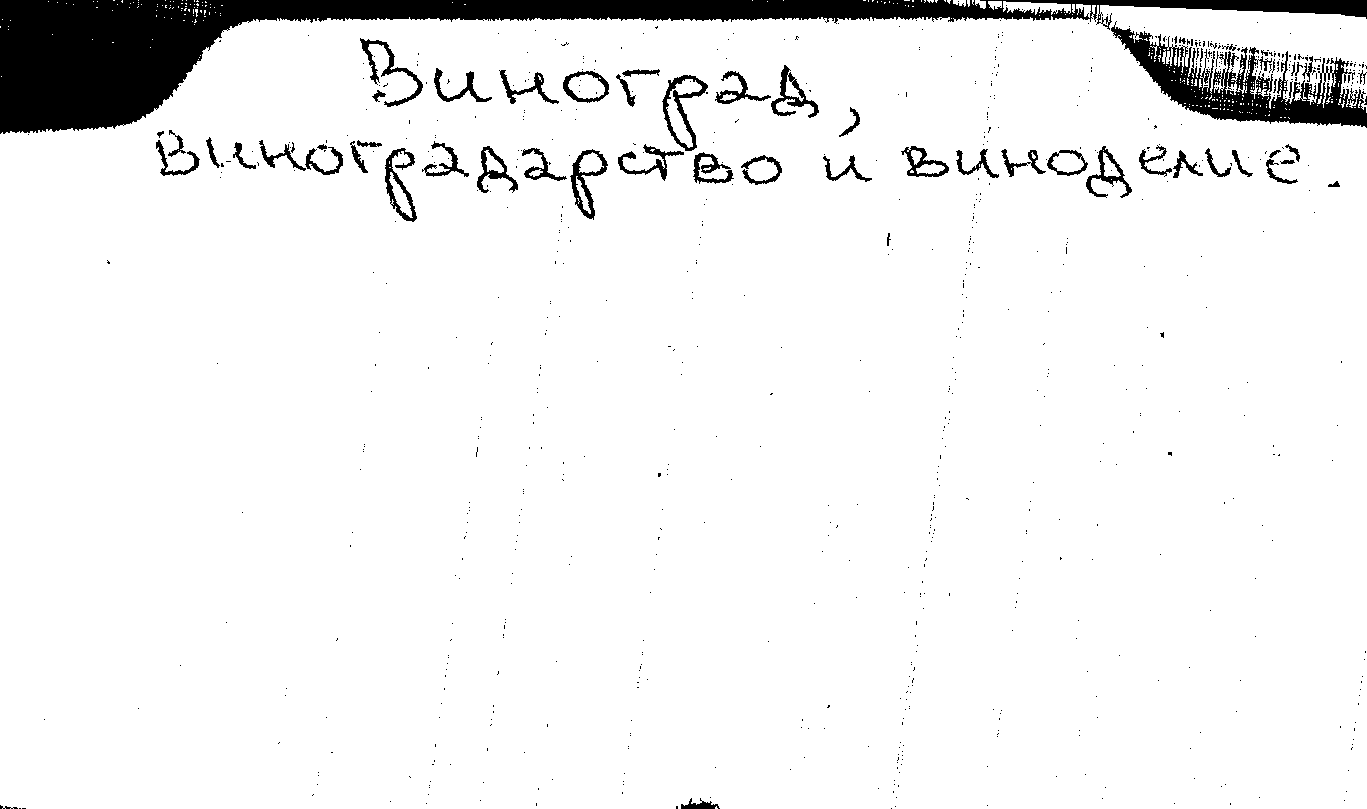 Виноград,
виноградарство и виноделие.